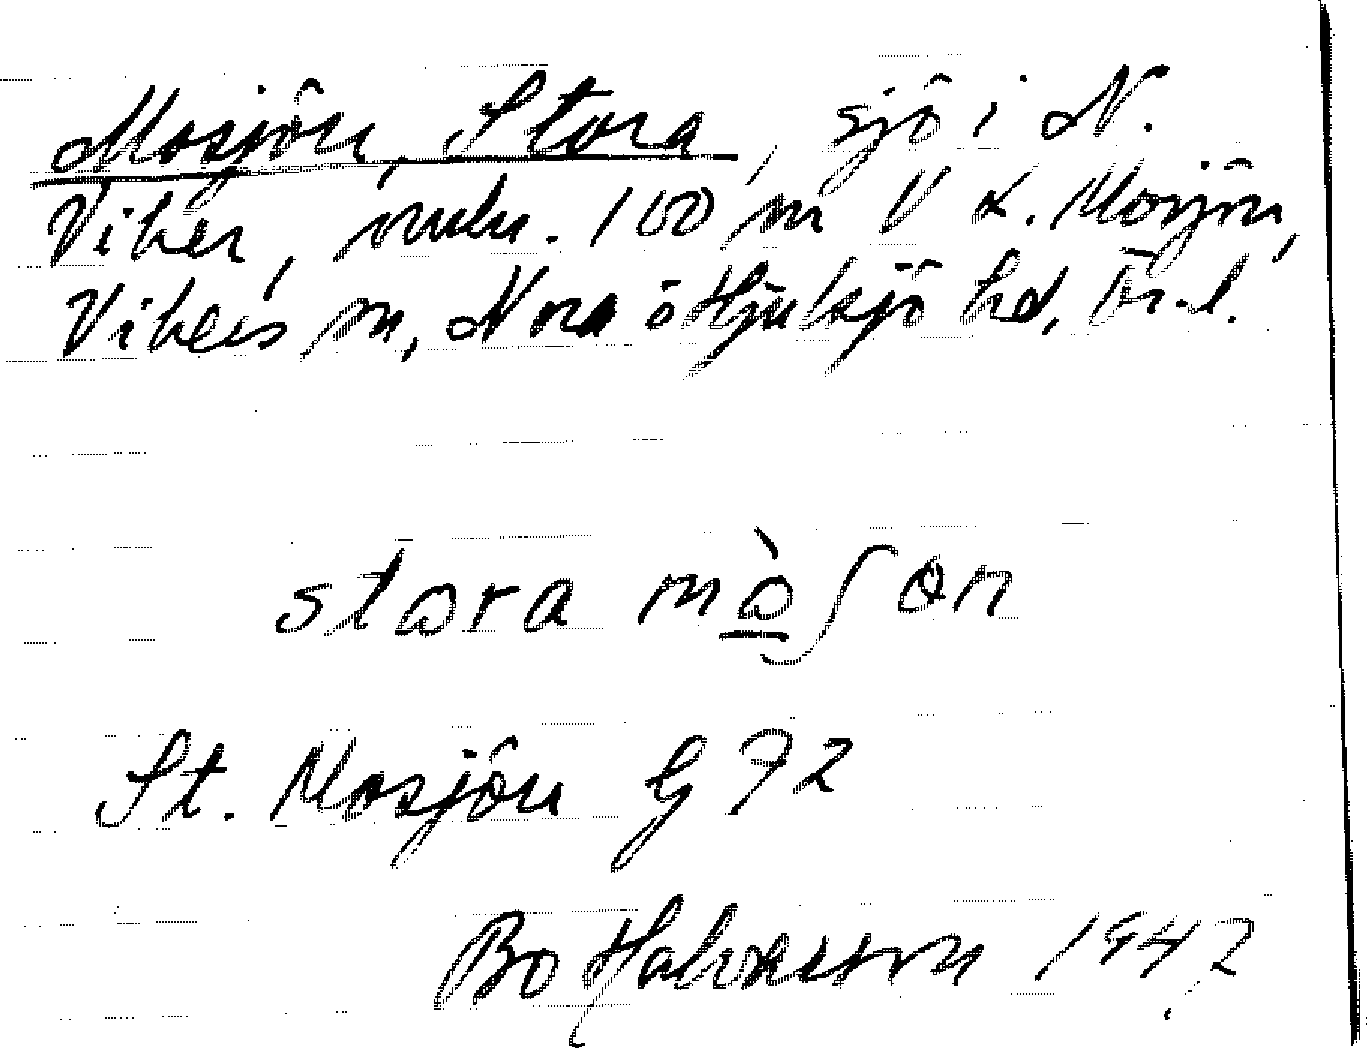 Mosjön, Stora, sjö i N.
Viker, 100 m V L. Mosjön,
Vikers sn, Nora o Hjulsjö hd, Ör. l.
stora mòʃon
St. Mosjön G 72
Bo Halvarson 1947